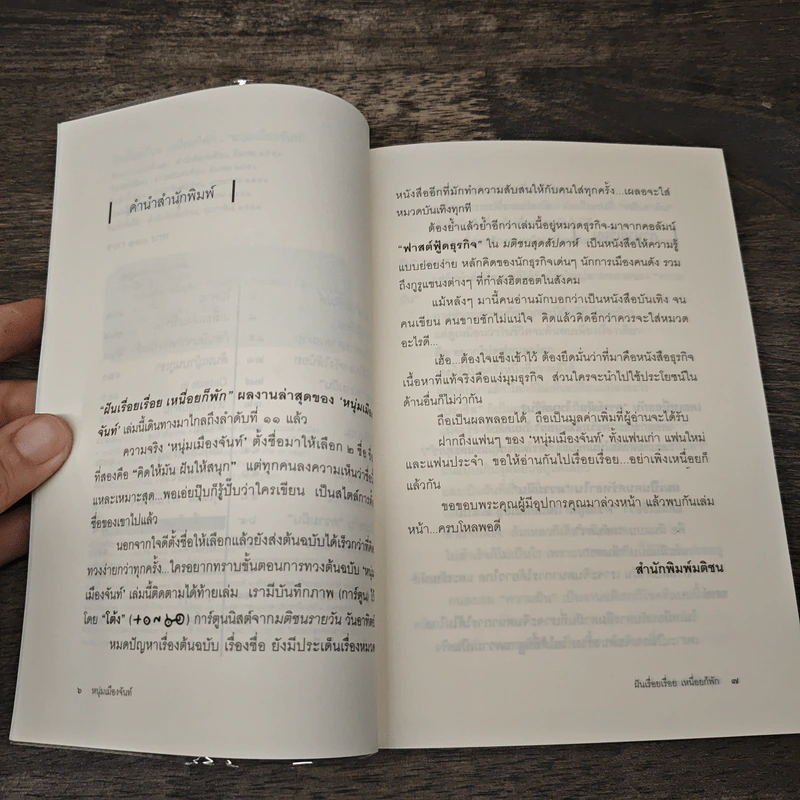 คำนำสำนักพิมพ์
"ฝันเรื่อยเรื่อย เหนื่อยก็พัก" ผลงานล่าสุดของ 'หนุ่มเมือง
จันท์' เล่มนี้เดินทางมาไกลถึงลำดับที่ ๑๑ แล้ว
ความจริง 'หนุ่มเมืองจันท์' ตั้งชื่อมาให้เลือก ๒ ชื่อ
ที่สองคือ "คิดให้มัน ฝันให้สนุก" แต่ทุกคนลงความเห็นว่า
แหละเหมาะสุด...พอเอ่ยปุ๊บก็รู้ปั๊บว่าใครเขียน เป็นสไตล์การ
ชื่อของเขาไปแล้ว
นอกจากใจดีตั้งชื่อให้เลือกแล้วยังส่งต้นฉบับได้เร็วกว่าที่
ทวงง่ายกว่าทุกครั้ง...ใครอยากทราบขั้นตอนการทวงต้นฉบับ 'หนุ่ม
เมืองจันท์' เล่มนี้ติดตามได้ท้ายเล่ม เรามีบันทึกภาพ (การ์ตูน) ไว้
โดย "โต้ง" การ์ตูนนิสต์จากมติชนรายวัน วันอาทิตย์
หมดปัญหาเรื่องต้นฉบับ เรื่องชื่อ ยังมีประเด็นเรื่องหมวด
๖ หนุ่มเมืองจันท์
หนังสืออีกที่มักทำความสับสนให้กับคนใส่ทุกครั้ง...เผลอจะใส่
หมวดบันเทิงทุกที
ต้องย้ำแล้วย้ำอีกว่าเล่มนี้อยู่หมวดธุรกิจ-มาจากคอลัมน์
"ฟาสต์ฟู้ดธุรกิจ" ใน มติชนสุดสัปดาห์ เป็นหนังสือให้ความรู้
แบบย่อยง่าย หลักคิดของนักธุรกิจเด่นๆ นักการเมืองคนดัง รวม
ถึงกูรูแขนงต่างๆ ที่กำลังฮิตฮอตในสังคม
แม้หลังๆ มานี้คนอ่านมักบอกว่าเป็นหนังสือบันเทิง จน
คนเขียน คนขายชักไม่แน่ใจ คิดแล้วคิดอีกว่าควรจะใส่หมวด
อะไรดี...
เฮ้อ...ต้องใจแข็งเข้าไว้ ต้องยึดมั่นว่าที่มาคือหนังสือธุรกิจ
เนื้อหาที่แท้จริงคือแง่มุมธุรกิจ ส่วนใครจะนำไปใช้ประโยชน์ใน
ด้านอื่นก็ไม่ว่ากัน
ถือเป็นผลพลอยได้ ถือเป็นมูลค่าเพิ่มที่ผู้อ่านจะได้รับ
ฝากถึงแฟนๆ ของ 'หนุ่มเมืองจันท์' ทั้งแฟนเก่า แฟนใหม่
และแฟนประจำ ขอให้อ่านกันไปเรื่อยเรื่อย...อย่าเพิ่งเหนื่อยก็
แล้วกัน
ขอขอบพระคุณผู้มีอุปการคุณมาล่วงหน้า แล้วพบกันเล่ม
หน้า...ครบโหลพอดี
สำนักพิมพ์มติชน
ฝันเรื่อยเรื่อย เหนื่อยก็พัก ๗